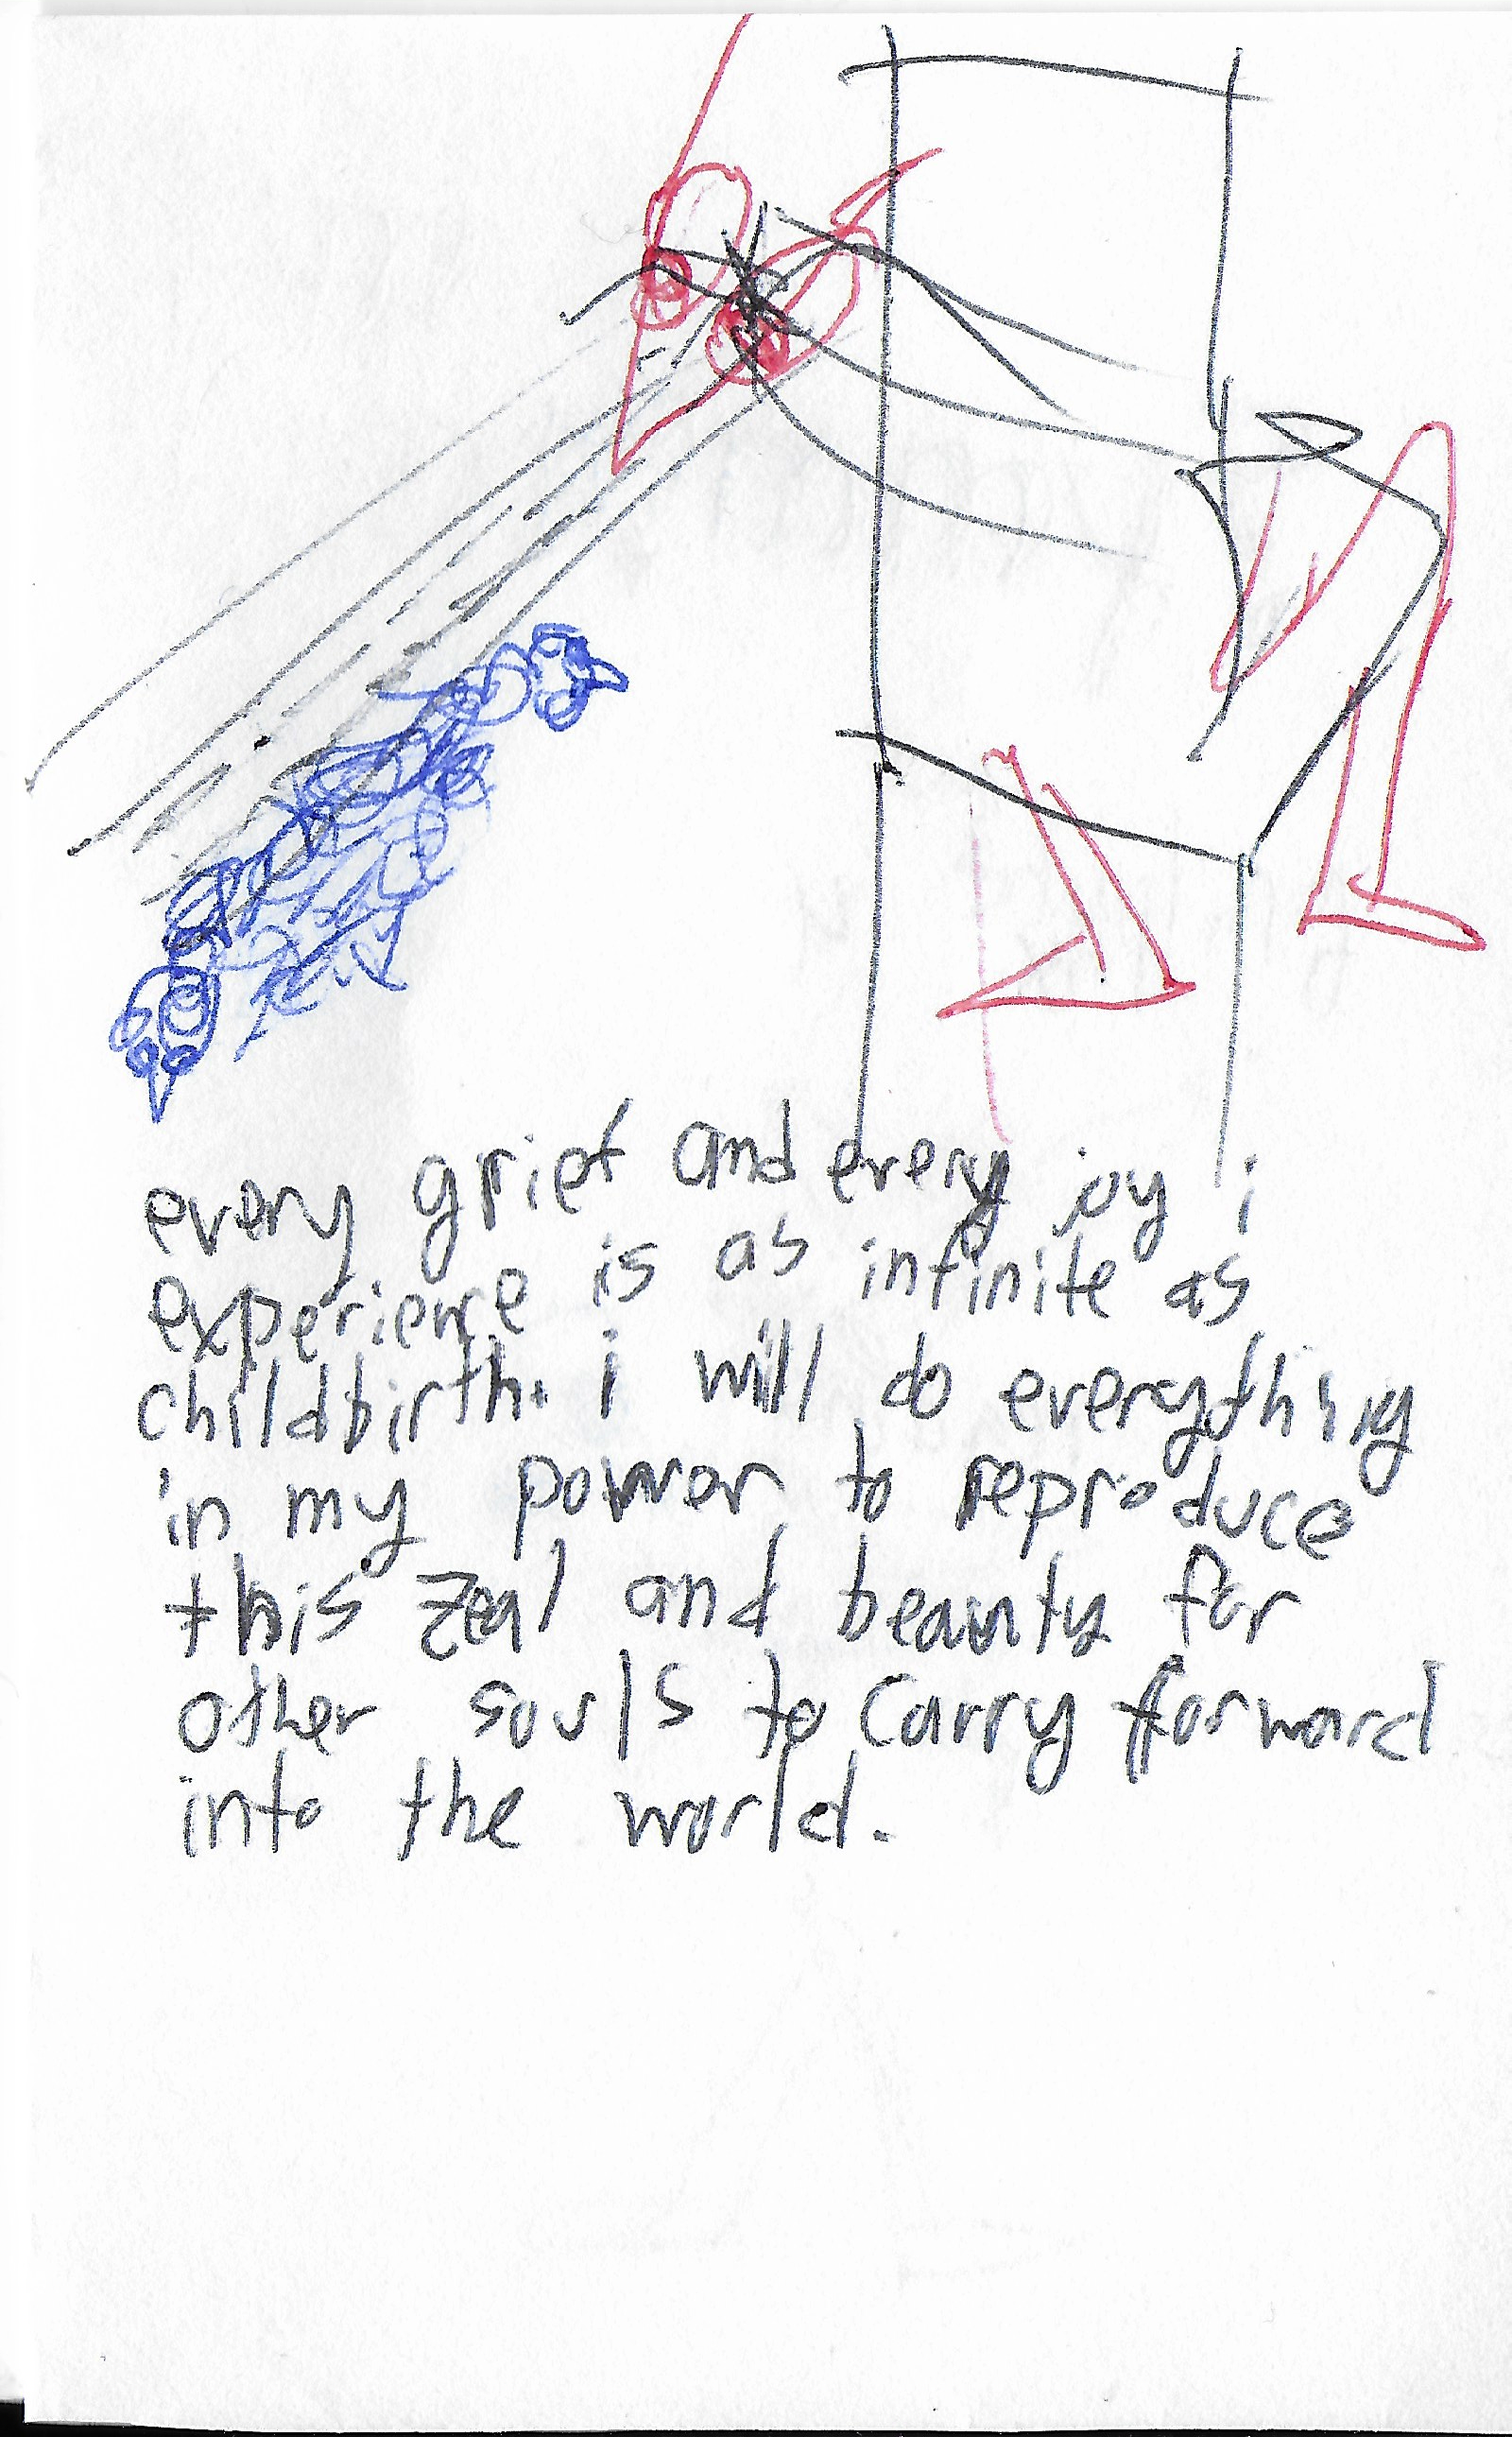 every grief and every joy i
experience is as infinite as
childbirth. i will do everything
in my power to reproduce
this zeal and beauty for
other souls to carry forward
into the world.